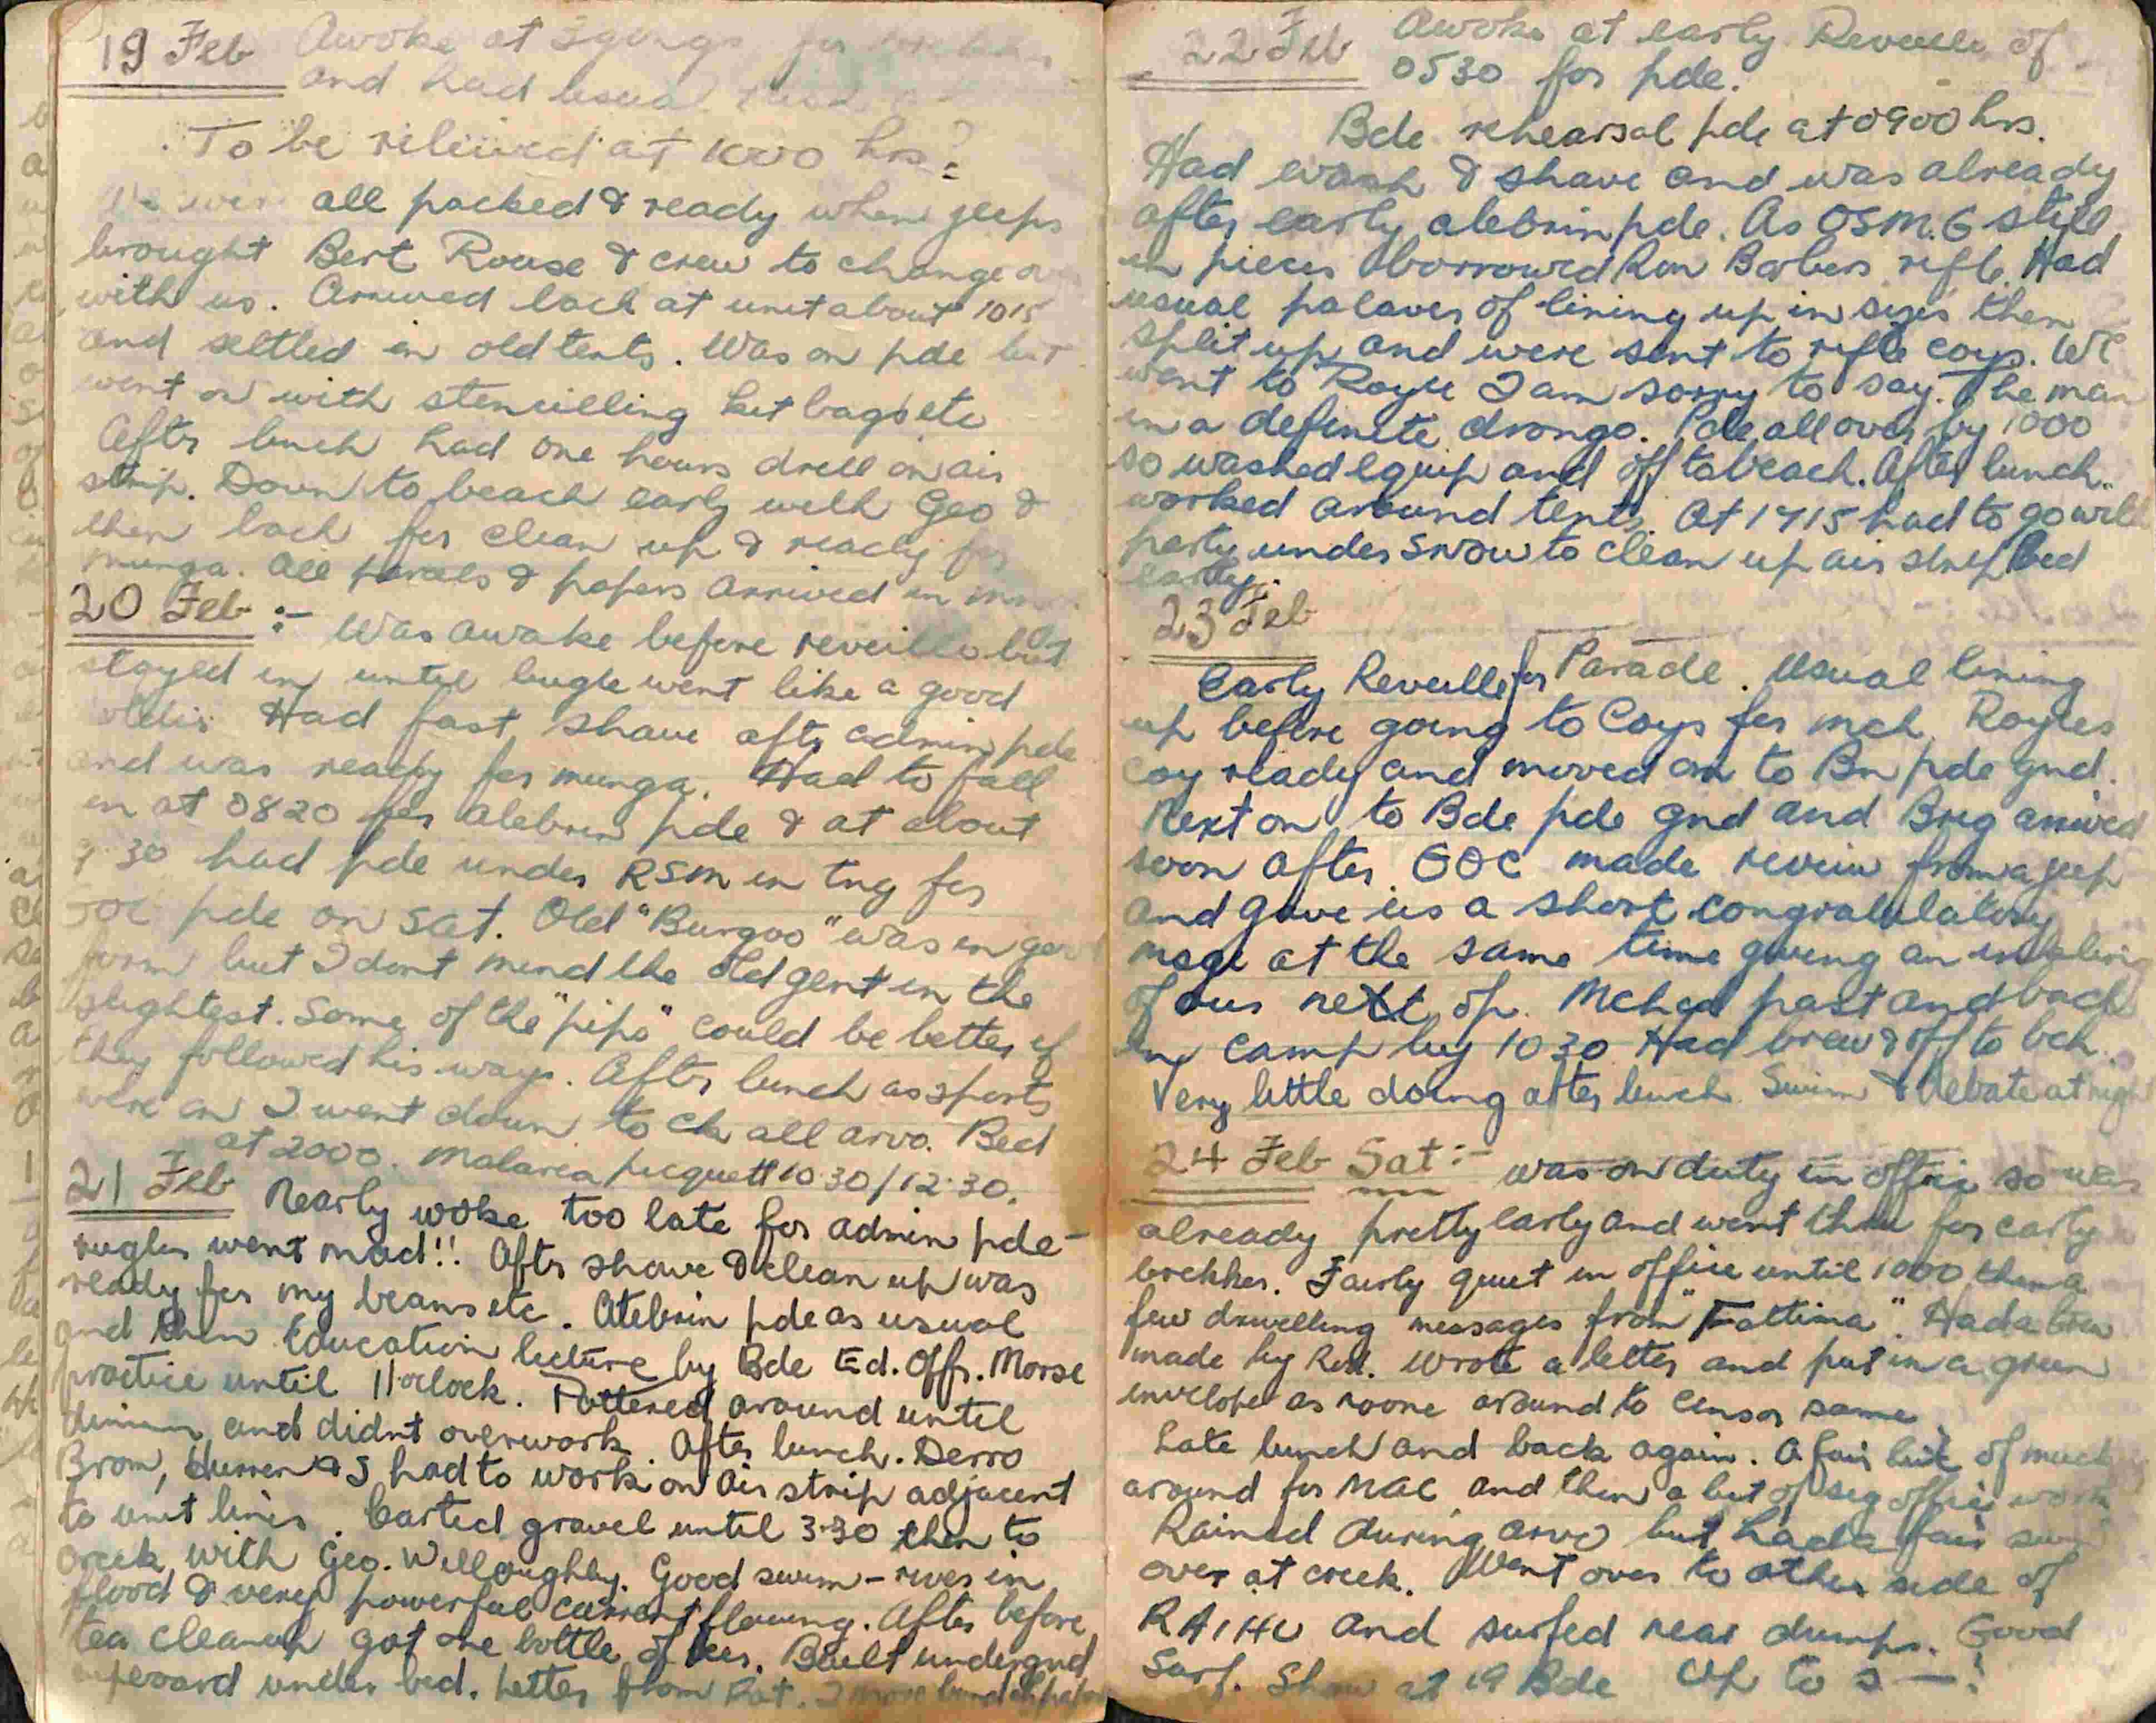 19 Feb Awoke at for
and had usual
To be relieved at 1000 hrs?
all packed & ready when jeeps
brought Bert Rouse & crew to change
with us. Arrived back at unit about 1015
and settled in old tents. Was on pde but
went on with stencilling kit bags etc
After lunch had one hours drill on air
strip. Down to beach early with Geo &
then back for clean up & ready for
munga. All parcels & papers arrived in
20 Feb :- Was awake before reveille but
stayed in until bugle went like a good
Had fast shave after admin pde
and was ready for munga. Had to fall
in at 0820 for atebrin pde & at about
30 had pde under RSM in tng for
pde on Sat. Old "Burgoo" was in
form but I dont mind the old gent in the
slightest. Some of the "pips" could be better if
they followed his ways. After lunch as sports
were on I went down to all arvo. Bed
at 2000. Malaria picquett 10.30/12.30.
21 Feb Nearly woke too late for admin pde -
went mad!! After shave & clean up was
ready for my beans etc. Atebrin pde as usual
and then Education lecture by Bde Ed. Offr. Morse
practice until 11 oclock. Pottered around until
dinner and didnt overwork. After lunch. Derro
Brom, & I had to work on air strip adjacent
to unit lines. Carted gravel until 3.30 then to
creek with Geo. Willoughby. Good swim - river in
flood & very powerful current flowing. After before
tea cleanup got one bottle of beer. Built undergnd
under bed. Letter from
22 Feb Awoke at early Reveille of
0530 for pde.
Bde rehearsal pde at 0900 hrs.
Had wash & shave and was already
after early atebrin pde. As OSM.G still
in pieces borrowed Ron Barbers rifle. Had
usual palaver of lining up in sizes then
split up and were sent to rifle coys. We
went to Royle I am sorry to say. The man
is a definite drongo. Pde all over by 1000
so washed equip and off to beach. After lunch
worked around tents. At 1715 had to go with
party under Snow to clean up air strip Bed
early.
23 Feb
Early Reveille for Parade. Usual lining
up before going to Coys for mch. Royles
coy ready and moved on to Bn pde gnd.
Next on to Bde pde gnd and Brig arrived
soon after. GOC made review from a jeep
and gave us a short congratulatory
msge at the same time giving an
of our next op. Mched past and back
in camp by 1030 Had brew & off to bch.
Very little doing after lunch. Swim & Debate at night
24 Feb Sat :- was on duty in office so was
already pretty early and went thru for early
brekker. Fairly quiet in office until 1000 then a
few drivelling messages from "Fattima". Had a brew
made by Red. Wrote a letter and put in a green
envelope as noone around to censor same.
Late lunch and back again. A fair bit of muck
around for MAC and then a bit of sig office work
Rained during arvo but had a fair
over at creek. Went over to other side of
RAIHU and surfed near dumps. Good
Surf. Show at 19 Bde Up to s—!